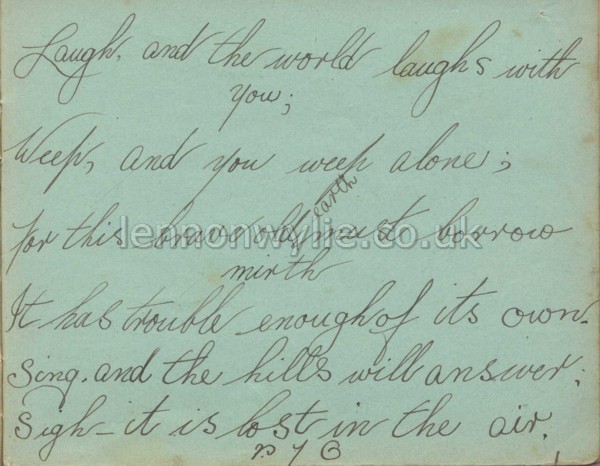 Laugh, and the world laughs with
you;
Weep, and you weep alone;
For this brave old earth must borrow
mirth
It has trouble enough of its own.
Sing, and the hills will answer;
Sigh - it is lost in the air.
lennonwylie.co.uk